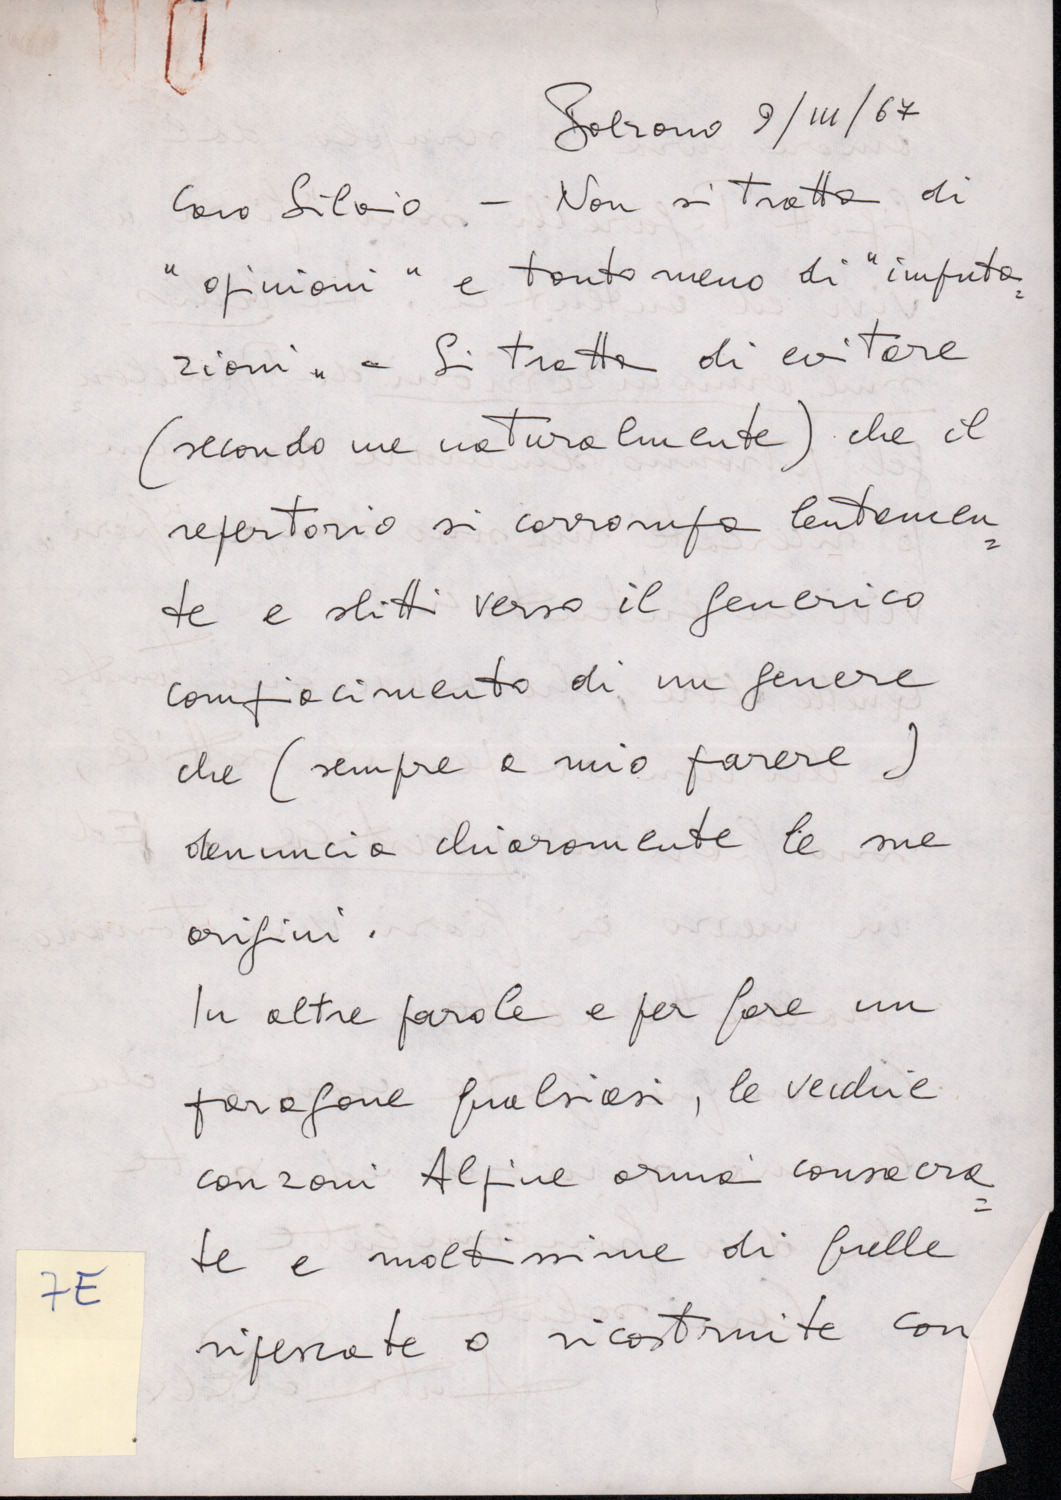 Bolzano 9/III/67
Caro Silvio – Non si tratta di
"opinioni" e tanto meno di "imputa=
zioni" – Si tratta di evitare
(secondo me naturalmente) che il
repertorio si corrompa lentamen=
te e slitti verso il generico
compiacimento di un genere
che (sempre a mio parere)
denuncia chiaramente le sue
origini.
In altre parole e per fare un
paragone qualsiasi, le vecchie
canzoni Alpine ormai consacra=
te e moltissime di quelle
ripescate o ricostruite con
7E